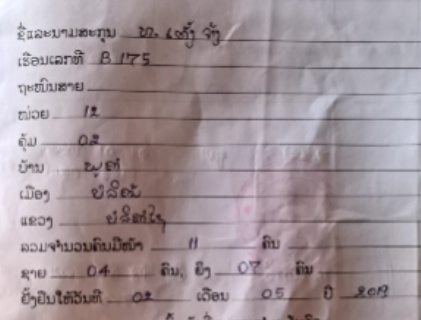 ຊື່ແລະນາມສະກຸນ ທ. ເຕັ້ງ ຈັງ
ເຮືອນເລກທີ B 175
ຖະໜົນສາຍ
ໜ່ວຍ 12
ຄຸ້ມ 02
ບ້ານ
ເມືອງ
ແຂວງ
ລວມຈຳນວນຄົນມີໜ້າ 11 ຄົນ
ຊາຍ 04 ຄົນ, ຍິງ 07 ຄົນ
ຢັ້ງຢືນໃຫ້ວັນທີ 02 ເດືອນ 05 ປີ